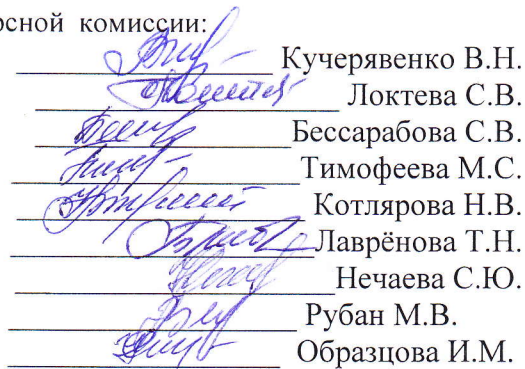 рсной комиссии:
Кучерявенко В.Н.
Локтева С.В.
Бессарабова С.В.
Тимофеева М.С.
Котлярова Н.В.
Лаврёнова Т.Н.
Нечаева С.Ю.
Рубан М.В.
Образцова И.М.